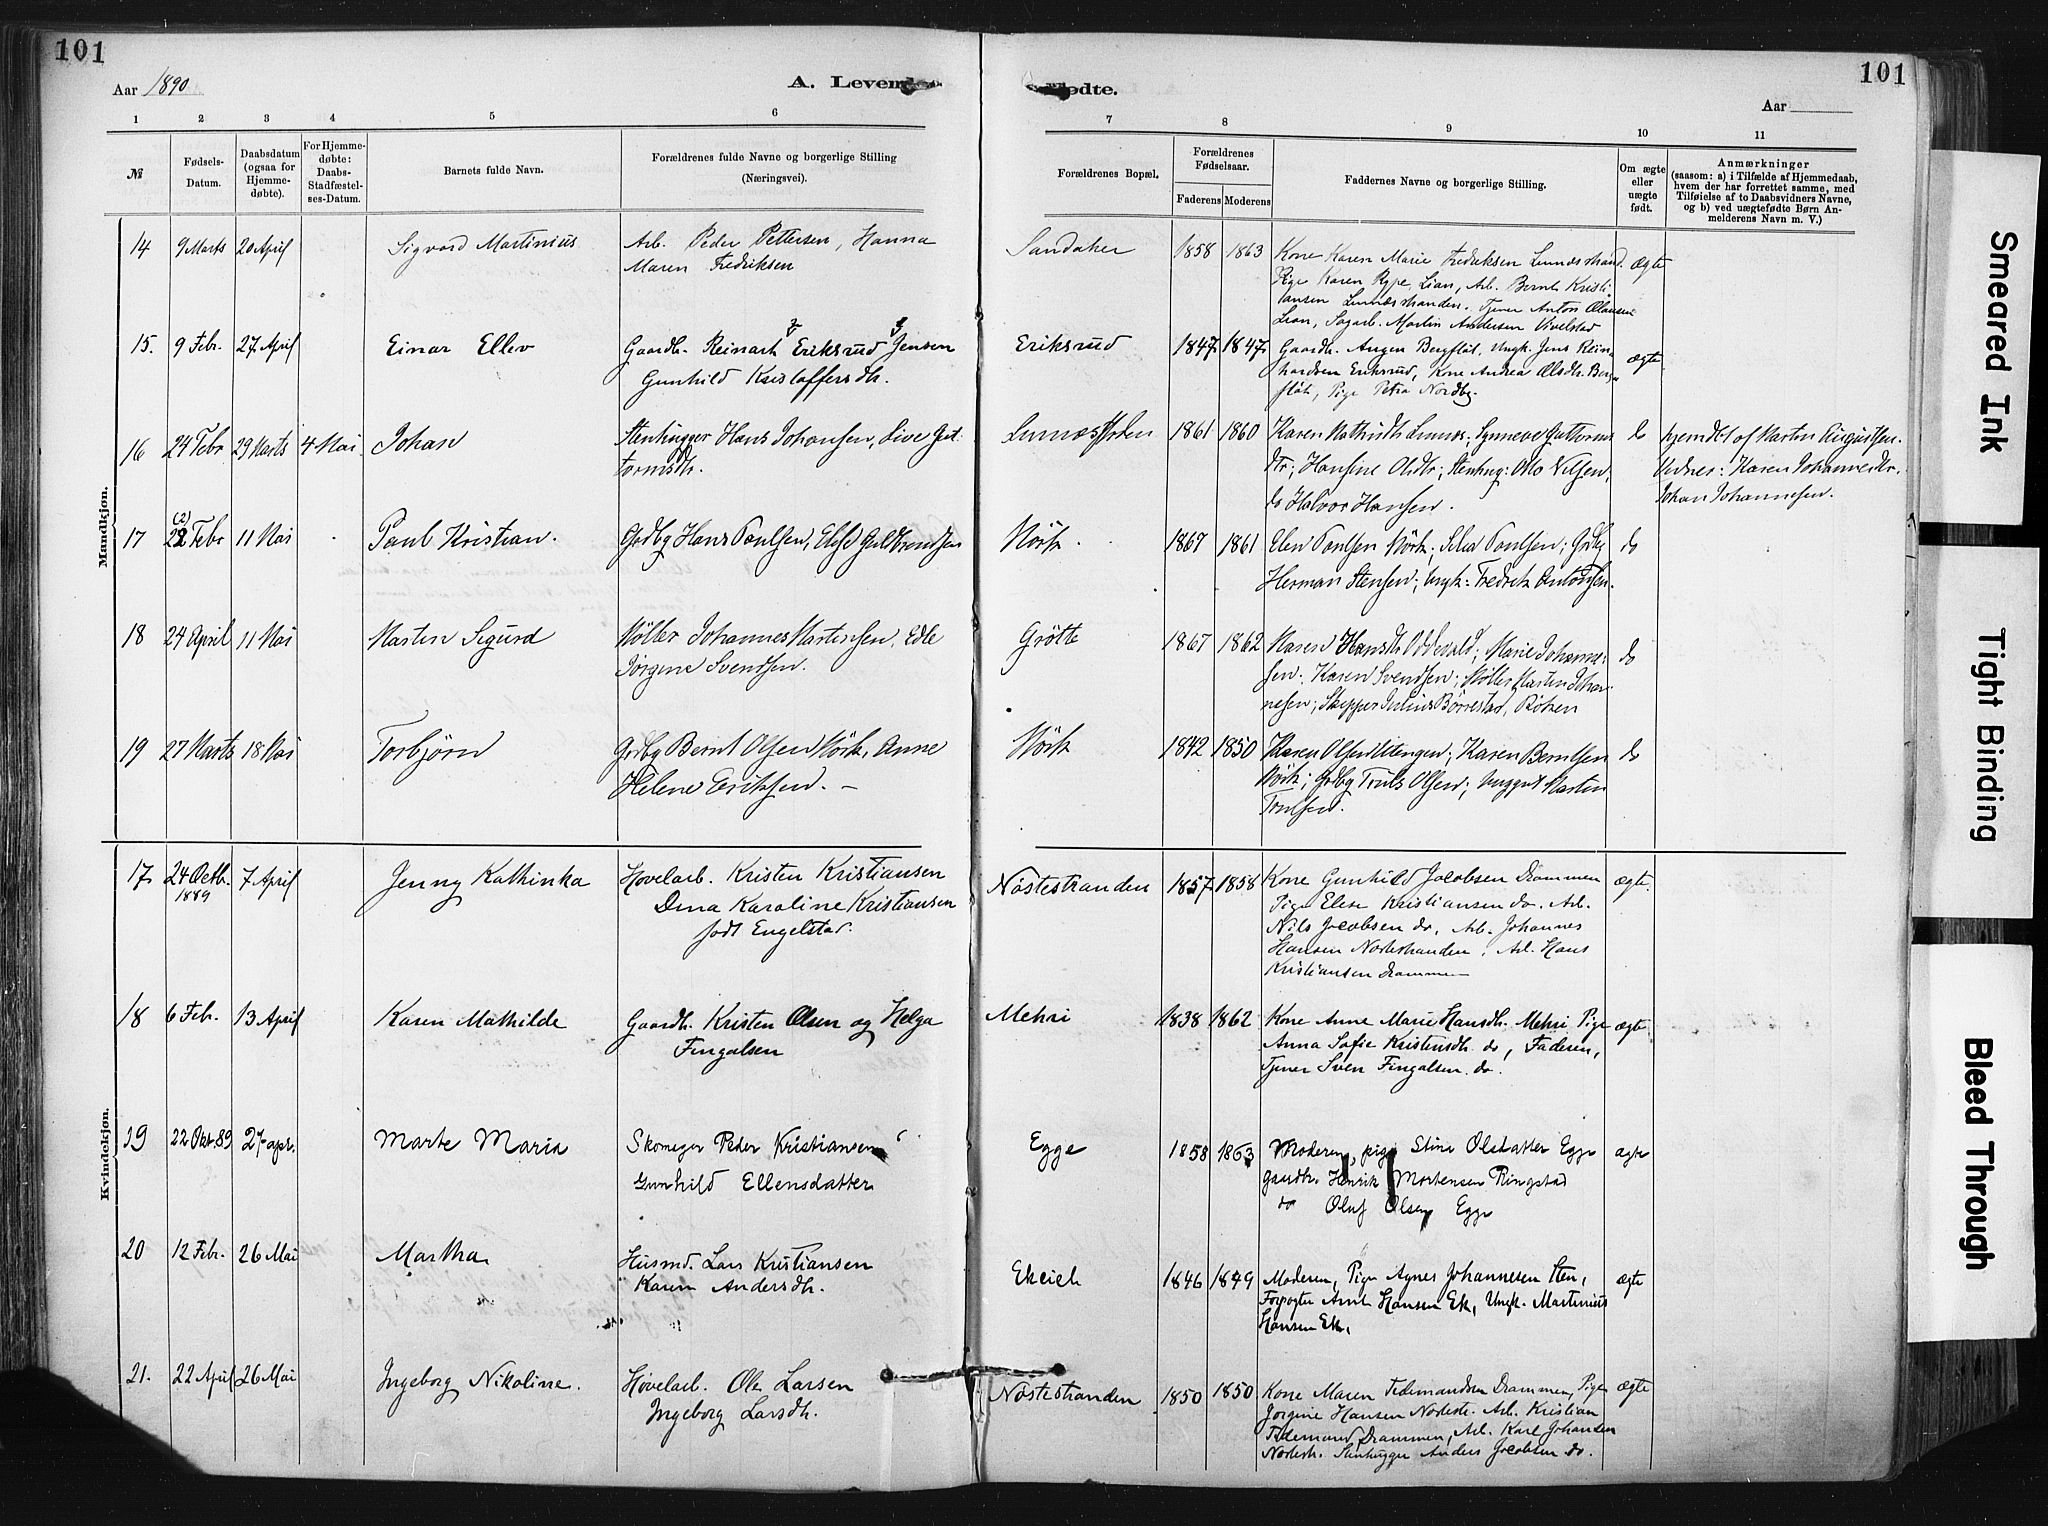 101
101
Aar 1890
A. Levende
Fødte.
Aar
1 2 3 4 5 6 7 8 9 10 11
№
Fødsels-Datum.
Daabsdatum (ogsaa for Hjemmedøbte).
For Hjemmedøbte: Daabs-Stadfæstelses-Datum.
Barnets fulde Navn.
Forældrenes fulde Navne og borgerlige Stilling (Næringsvei).
Forældrenes Bopæl.
Forældrenes Fødselsaar.
Faderens Moderens
Faddernes Navne og borgerlige Stilling.
Om ægte eller uægte født.
Anmærkninger
(saasom: a) i Tilfælde af Hjemmedaab, hvem der har forrettet samme, med Tilføielse af to Daabsvidners Navne, og b) ved uægtefødte Børn Anmelderens Navn m. V.)
Mandkjøn.
14 9 Marts 20 April Sigvard Martinius Arb. Peder Pettersen, Hanna
Maren Fredriksen
Sandaker 1858 1863 Kone Karen Marie Fredriksen Linnesstrand. ægte
Pige Karen Rype, Lian, Arb. Bernt Kristi
ansen Linnesstranden. Tjener Anton Olausen
Lian, Sagarb. Martin Andersen Vivelstad
15. 9 Febr. 27 April Einar Ellev Gaardb. Reinart Eriksrud Jensen
Gunhild Kristoffersdtr.
Eriksrud 1847 1847 Gaardb. Augen Bergfløt, Ungk. Jens Rein
hardsen Eriksrud, Kone Andrea Olsdtr. Berg
fløt, Pige Petra Nordby. ægte
16 24 Febr 29 Marts 4 Mai Johan Stenhugger Hans Johansen, Live Gut
tormsdtr.
1861 1860 Karen Linnes; Synneve Guttorms
dtr; Hansine Olsdtr; Stenhug: Otto Nilsen,
do Halvor Hansen. do
hjemdbt af Martin Augustsen.
Vidner: Karen Johannesdtr.
Johan Johannesen.
17 22 (2) Febr 11 Mai Paul Kristian. Grdbg Hans Paulsen, Else Gulbrandsen
Mørk. 1867 1861 Elen Paulsen Mørk; Paulsen; Grdbg
Herman Stensen; Ungk: Fredrik Antonsen. do
18 24 April 11 Mai Martin Sigurd Møller Johannes Martinsen, Edle
Jørgine Svendsen.
Grøtte 1867 1862 Maren Hansdtr Odevald; Marie Johanne
sen. Karen Svendsen; Møller Martin Johan
nesen; Skipper Julius Børrestad, Røken do
19 27 Marts 18 Mai Torbjørn Grdbg Bernt Olsen Mørk, Anne
Helene Eriksen. –
Mørk 1842 1850 Karen Olsen Eltengen; Karen Berntsen
Mørk; Grdbg Truls Olsen; Unggut Martin
Trulsen. do
Kvindekjøn.
17 24 Octb. 1889 7 April Jenny Kathinka Høvelarb. Kristen Kristiansen
Dina Karoline Kristiansen
født Engelstad.
Nøstestranden 1857 1858 Kone Gunhild Jacobsen Drammen
Pige Elise Kristiansen do. Arb.
Nils Jacobsen do, Arb. Johannes
Hansen Nøstestranden, Arb. Hans
Kristiansen Drammen ægte.
18 6 Febr. 13 April Karen Mathilde Gaardb. Kristen Olsen og Helga
Fingalsen
Mehri 1838 1862 Kone Anne Marie Hansdtr. Mehri Pige
Anna Sofie Kristensdtr. do, Faderen,
Tjener Sven Fingalsen do. ægte
19 22 Okt. 89 27 apr. Marte Maria Skomager Peder Kristiansen
Gunhild Ellensdatter
Egge 1858 1863 Moderen, pige Stine Olsdatter Egge
Gaardb. Henrik Mortensen Ringstad
do Oluf Olsen Egge ægte
20 12 Febr. 26 Mai Martha Husmd. Lars Kristiansen
Karen Andersdtr.
Ekeieh 1846 1849 Moderen, Pige Agnes Johannesen Sten,
Forpagter Arnt Hansen Ek, Ungk. Martinius
Hansen Ek, ægte
21. 22 April 26 Mai Ingeborg Nikoline. Høvelarb. Ole Larsen
Ingeborg Larsdtr.
Nøstestranden 1850 1850 Kone Maren Tidemandsen Drammen, Pige
Jørgine Hansen Nøstestr. Arb. Kristian
Tidemand Drammen, Arb. Karl Johansen
Nøstestr. Stenhugger Anders Jacobsen do. ægte
Smeared Ink
Tight Binding
Bleed Through